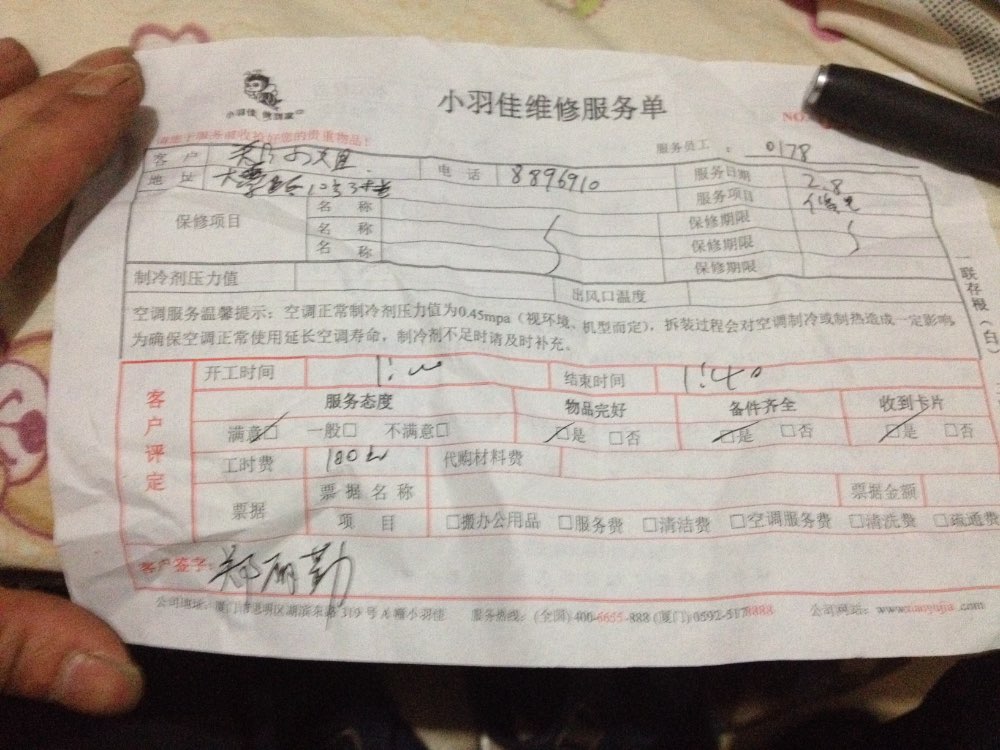 小羽佳维修服务单
小羽佳 像回家
NO.
服务员工： 0178
客 户 电 话 8896910 服务日期 2.8
地 址 服务项目
保修项目 名 称 保修期限
名 称 保修期限
名 称 保修期限
制冷剂压力值 出风口温度
空调服务温馨提示：空调正常制冷剂压力值为0.45mpa（视环境、机型而定），拆装过程会对空调制冷或制热造成一定影响，
为确保空调正常使用延长空调寿命，制冷剂不足时请及时补充。
一联存根（白）
客户评定
开工时间 1:00 结束时间 1:40
服务态度 物品完好 备件齐全 收到卡片
满意□ 一般□ 不满意□ □是 □否 □是 □否 □是 □否
工时费 180元 代购材料费
票据 票 据 名 称 票据金额
项 目 □搬办公用品 □服务费 □清洁费 □空调服务费 □清洗费 □疏通费
客户签字： 郑丽勤
公司地址：厦门市思明区湖滨东路319号A幢小羽佳 服务热线：(全国)400-6655-888 (厦门)0592-5178888 公司网站：www.xiaoyujia.com